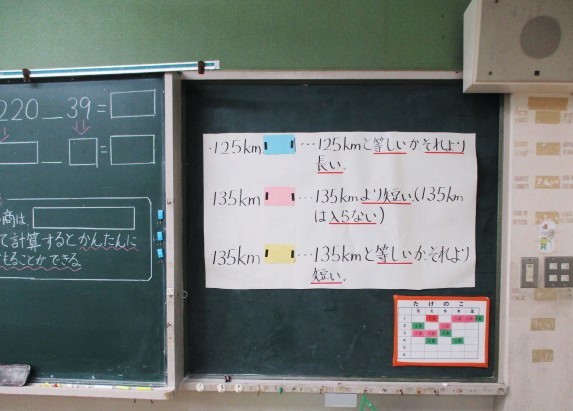 220 _ 39 =
=
商は
て計算するとかんたんに
せることができる
・125km … 125kmと等しいかそれより
長い。
135km … 135kmより短い。(135km
は入らない)
135km … 135kmと等しいか、それより
短い。
たけのこ
月 火 水 木 金
1
2
3
4
5
6